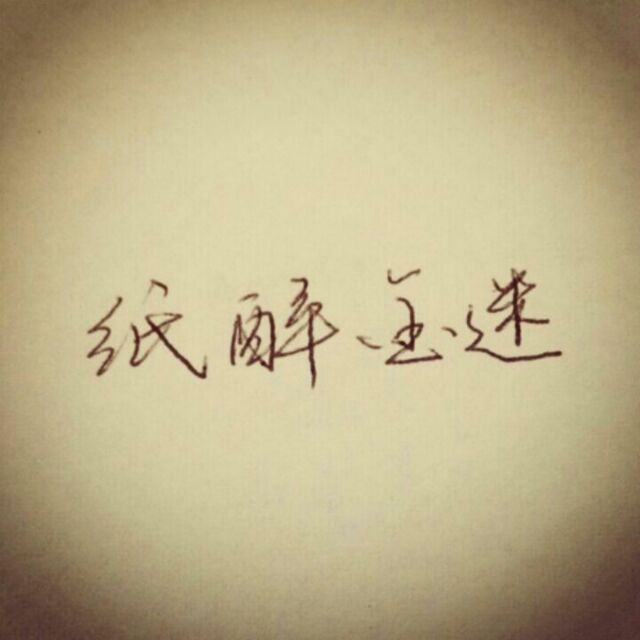 纸醉金迷